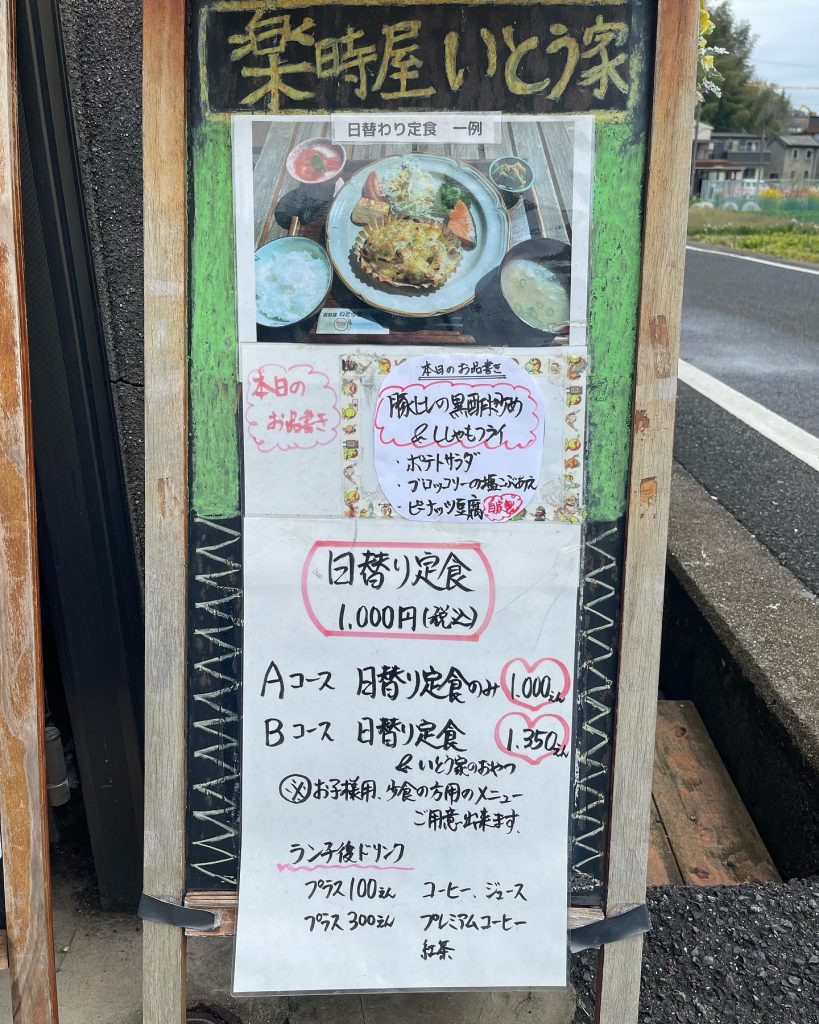 楽時屋 いとう家
日替わり定食 一例
本日の
お品書き
本日のお品書き
豚ヒレの黒酢炒め
&ししゃもフライ
・ポテトサラダ
・ブロッコリーの塩こぶあえ
・ピーナッツ豆腐 自家製
日替り定食
1,000円(税込)
Aコース 日替り定食のみ 1.000えん
Bコース 日替り定食 1.350えん
&いとう家のおやつ
※お子様用、少食の方用のメニュー
ご用意出来ます、
ランチ後ドリンク
プラス100えん コーヒー、ジュース
プラス300えん プレミアムコーヒー
紅茶